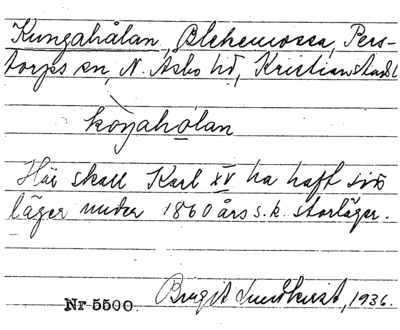 Kungahålan, Blekemossa, Pers-
torps sn, N. Åsbo hd, Kristianstads l
koŋahọlan
Här skall Karl XV ha haft sitt
läger under 1860 års s.k. storläger.
Nr 5500. Birgit Lundkvist, 1936.